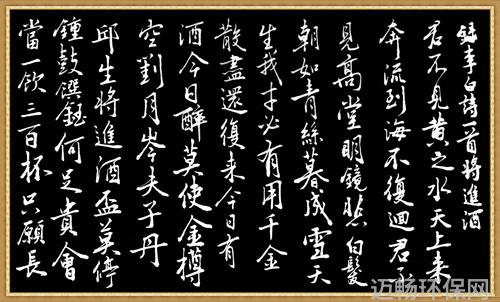 録李白詩一首將進酒
君不見黄之水天上来
奔流到海不復迴君不
見高堂明鏡悲白髮
朝如青絲暮成雪天
生我才必有用千金
散盡還復来今日有
酒今日醉莫使金樽
空對月岑夫子丹
邱生將進酒盃莫停
鍾鼓饌鈺何足貴會
當一飲三百杯只願長
迈畅环保网